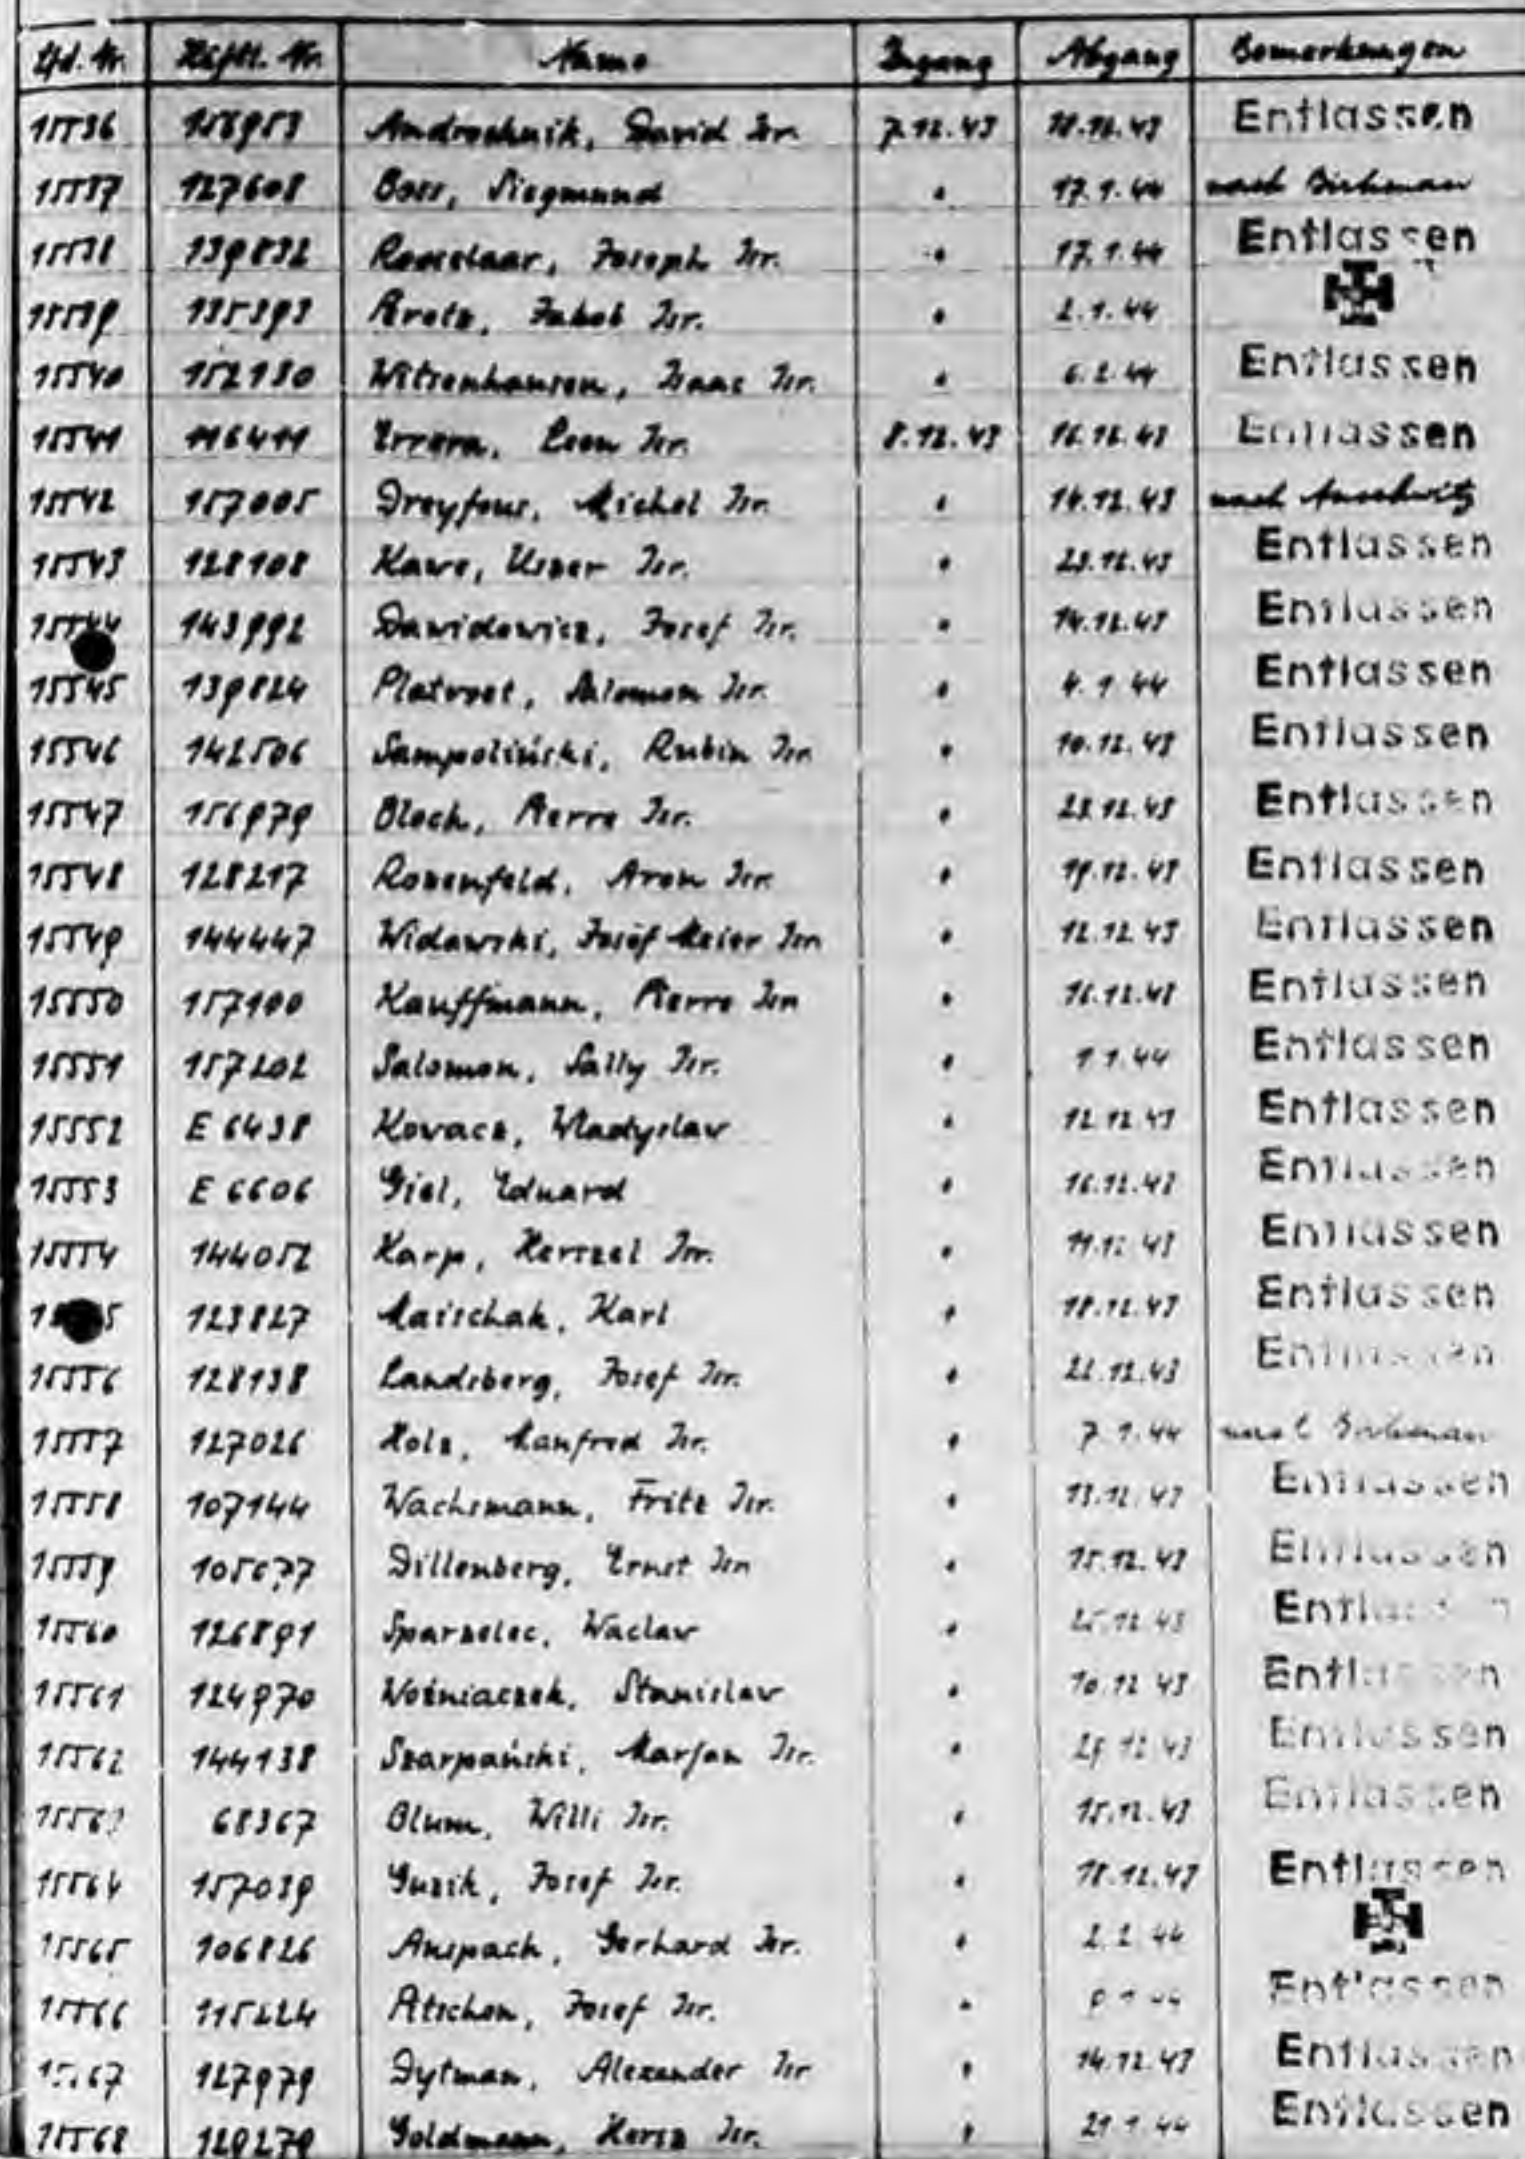 Lfd. Nr. Häftl. Nr. Name Zugang Abgang Bemerkungen
15536 156953 Androchnik, David Isr. 7.12.43 Entlassen
15537 127608 Boss, Siegmund " 17.1.44 nach Birkenau
15538 139832 Roeselaar, Joseph Isr. " 17.1.44 Entlassen
15539 135393 Jakob Isr. " 2.1.44
15540 152130 Witsenhausen, Isaac Isr. " 6.2.44 Entlassen
15541 116411 Errera, Leon Isr. 8.12.43 16.12.43 Entlassen
15542 157005 Dreyfous, Michel Isr. " 14.12.43 nach Auschwitz
15543 128108 Kawe, Uszer Isr. " 23.12.43 Entlassen
15544 143992 Dawidowicz, Josef Isr. " 14.12.43 Entlassen
15545 139824 Platvoet, Salomon Isr. " 4.1.44 Entlassen
15546 142506 Sampoliński, Rubin Isr. " 10.12.43 Entlassen
15547 156979 Bloch, Pierre Isr. " 23.12.43 Entlassen
15548 128217 Rozenfeld, Aron Isr. " 19.12.43 Entlassen
15549 144447 Widawski, Josef Meier Isr. " 12.12.43 Entlassen
15550 157100 Kauffmann, Pierre Isr. " 16.12.43 Entlassen
15551 157202 Salomon, Sally Isr. " 1.1.44 Entlassen
15552 E 6438 Kovacz, Wladyslaw " 12.12.43 Entlassen
15553 E 6606 Giel, Eduard " 16.12.43 Entlassen
15554 144052 Karp, Herszel Isr. " 11.12.43 Entlassen
123827 Maischak, Karl " 18.12.43 Entlassen
15556 128138 Landsberg, Josef Isr. " 22.12.43 Entlassen
15557 127026 Holz, Manfred Isr. " 7.1.44 nach Birkenau
15558 107144 Wachsmann, Fritz Isr. " 13.12.43 Entlassen
15559 105677 Dillenberg, Ernst Isr. " 15.12.43 Entlassen
15560 126891 Sparzelec, Waclaw " 25.12.43 Entlassen
15561 124970 Woźniaczek, Stanislaw " 10.12.43 Entlassen
15562 144138 Szarpański, Marjan Isr. " 12.43 Entlassen
15563 68367 Blum, Willi Isr. " 15.12.43 Entlassen
15564 157039 Guzik, Josef Isr. " 18.12.43 Entlassen
15565 106826 Anspach, Gerhard Isr. " 2.2.44
15566 115224 Atschen, Josef Isr. " Entlassen
15567 127979 Dytman, Alexander Isr. " 14.12.43 Entlassen
15568 129279 Goldmann, Hersz Isr. " 21.1.44 Entlassen